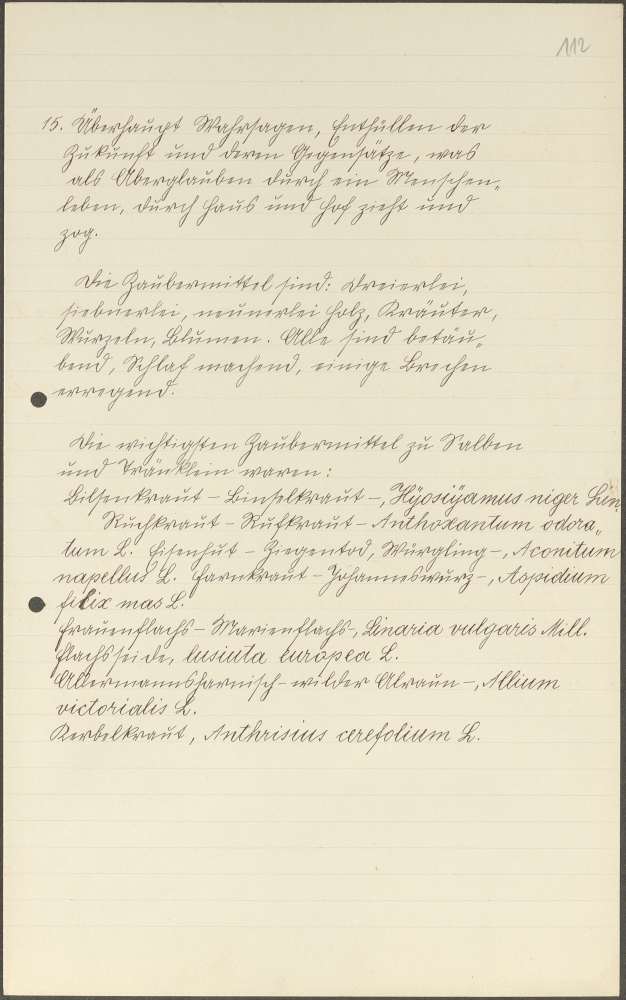 112
15. Überhaupt Wahrsagen, Enthüllen der
Zukunft und deren Gegensätze, was
als Aberglauben durch ein Menschen„
leben, durch Haus und Hof zieht und
zog.
Die Zaubermittel sind: Dreierlei,
siebnerlei, neunerlei Holz, Kräuter,
Wurzeln, Blumen. Alle sind betäu„
bend, Schlaf machend, einige Brechen
erregend.
Die wichtigsten Zaubermittel zu Salben
und Tränklein waren:
Bilsenkraut - Binselkraut -, Hyosiyamus niger Lin.
Ruchkraut - Rufkraut - Anthoxantum odora„
tum L. Eisenhut - Ziegentod, Würgling -, Aconitum
napellus L. Farnkraut - Johanneswurz -, Aspidium
filix mas L.
Frauenflachs - Marienflachs -, Linaria vulgaris Mill.
Flachsseide, cusiuta europea L.
Allermannsharnisch - wilder Alraun -, Allium
victorialis L.
Kerbelkraut, Anthrisius cerefolium L.